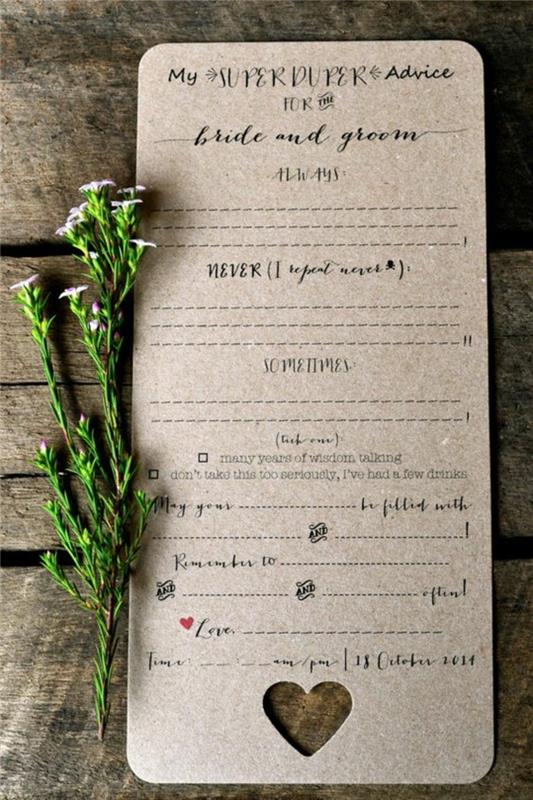 My SUPER DUPER Advice
FOR THE
bride and groom
ALWAYS:
!
NEVER (I repeat never):
!!
SOMETIMES:
!
(tick one)
many years of wisdom talking
don't take this too seriously, I've had a few drinks
May your be filled with
AND !
Remember to
AND AND often!
Love,
Time: __:__am/pm | 18 October 2014